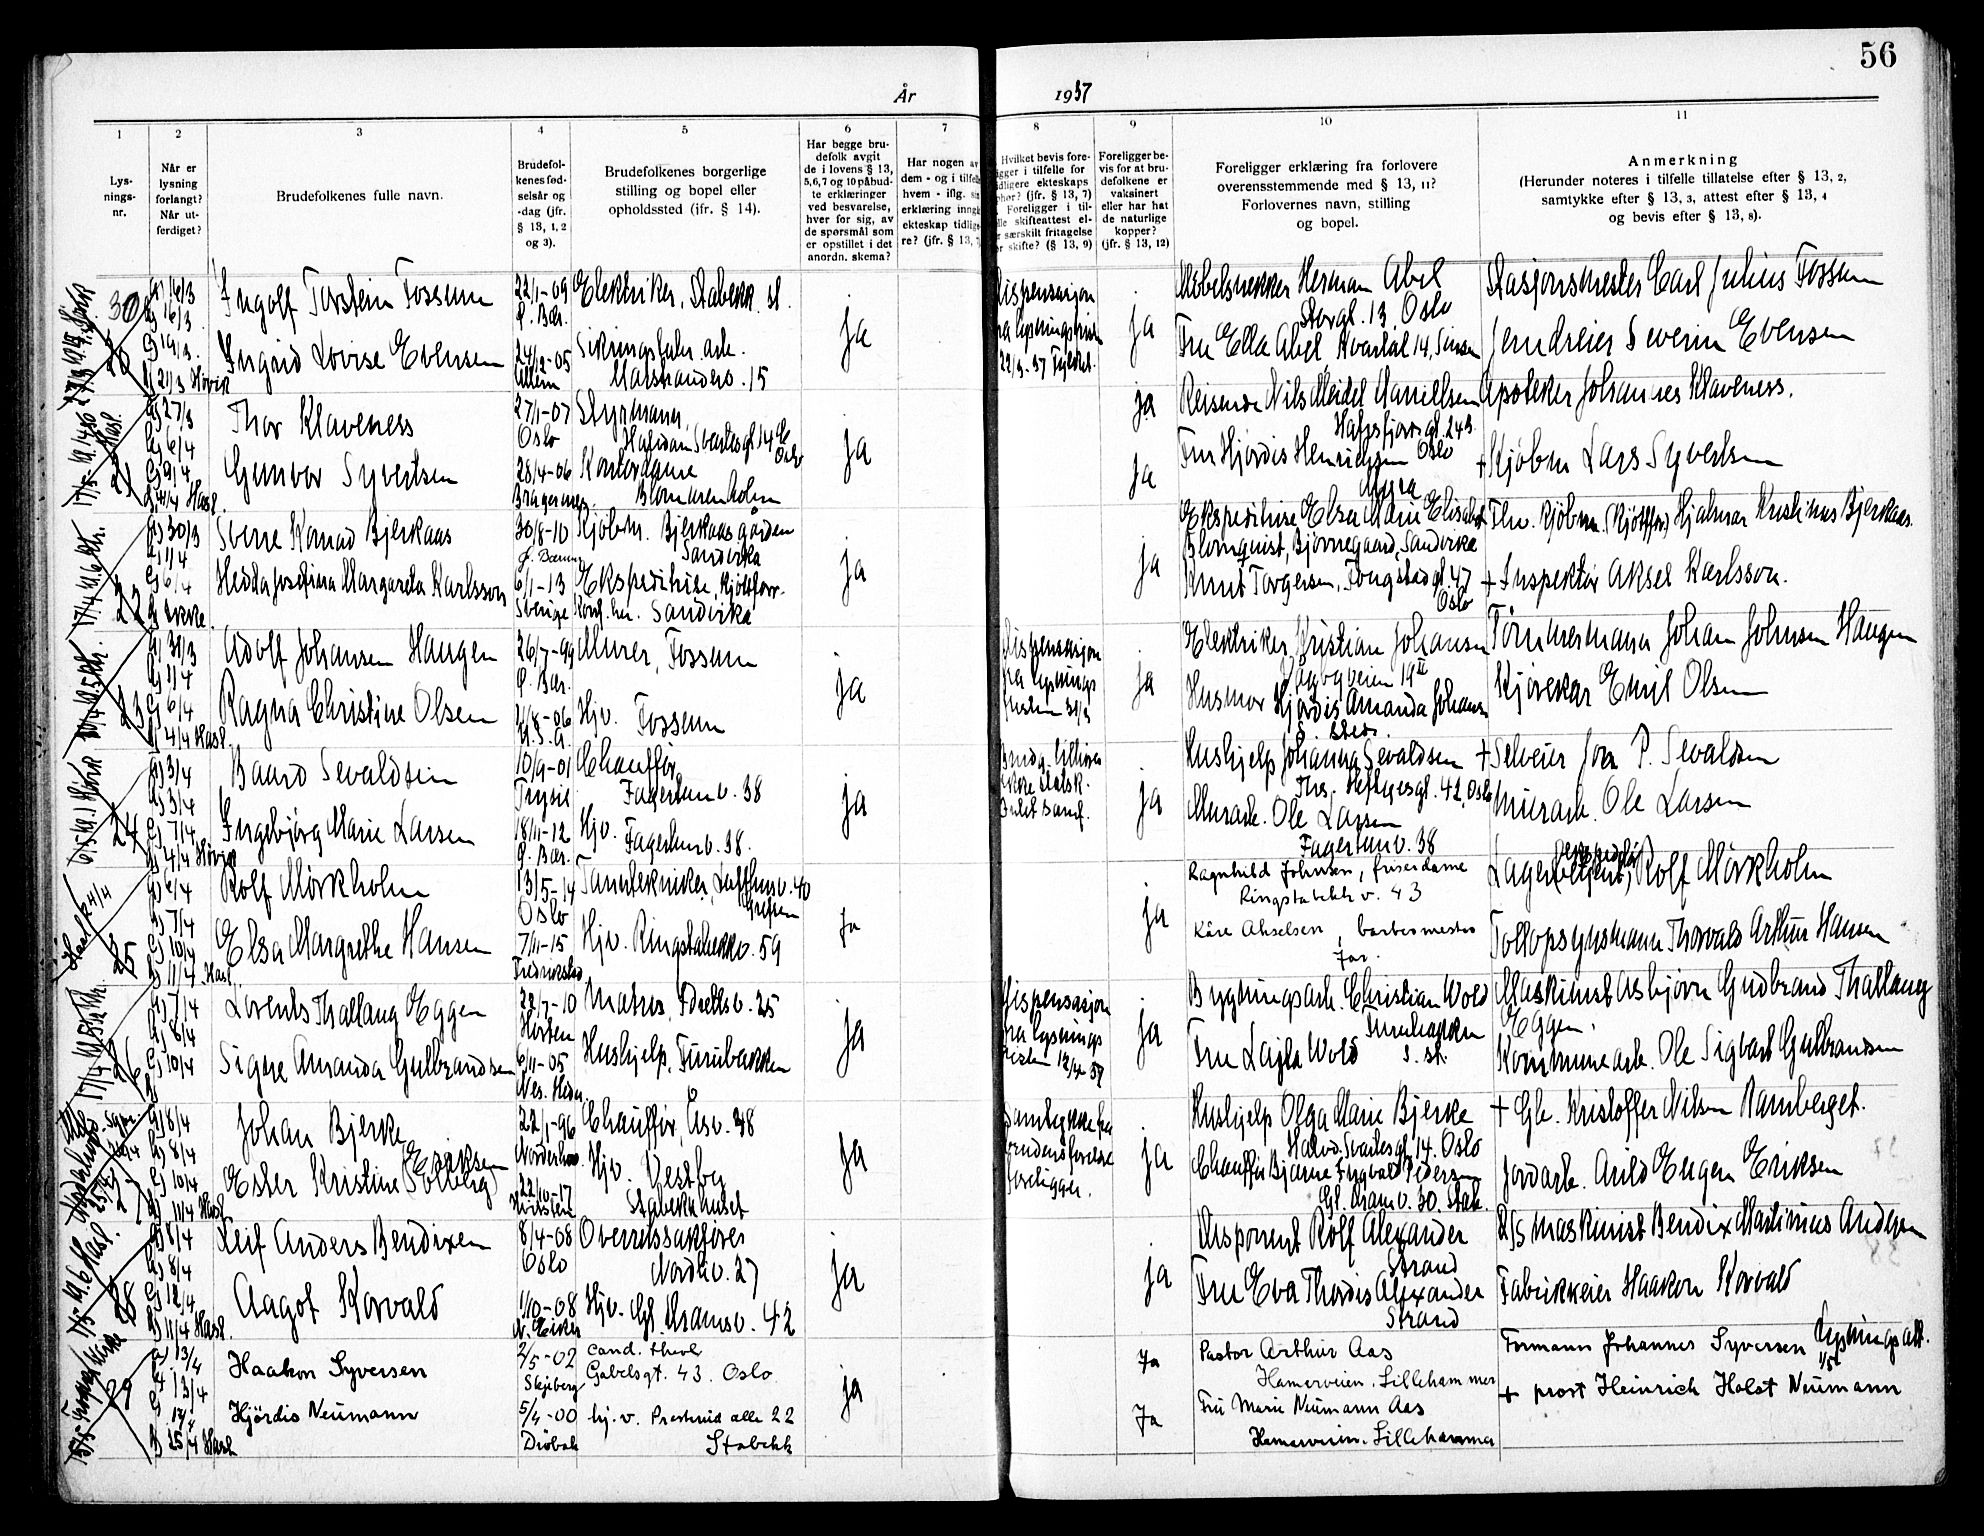 56
År 1937
1 2 3 4 5 6 7 8 9 10 11
Lys-
nings-
nr.
Når er
lysning
forlangt?
Når ut-
ferdiget?
Brudefolkenes fulle navn.
Brudefol-
kenes fød-
selsår og
-dag (jfr.
§ 13, 1, 2
og 3).
Brudefolkenes borgerlige
stilling og bopel eller
opholdssted (jfr. § 14).
Har begge bru-
defolk avgit
de i lovens § 13,
5,6,7 og 10 påbud-
te erklæringer
ved besvarelse,
hver for sig, av
de spørsmål som
er opstillet i det
anordn. skema?
Har nogen av
dem - og i tilfelle
hvem - iflg. sin
erklæring inngå
ekteskap tidlige-
re? (jfr. § 13, 7
Hvilket bevis fore-
ligger i tilfelle for
tidligere ekteskaps
ophør? (jfr. § 13, 7)
Foreligger i til-
felle skifteattest el-
særskilt fritagelse
for skifte? (§ 13, 9)
Foreligger be-
vis for at bru-
defolkene er
vaksinert
eller har hat
de naturlige
kopper?
(jfr. § 13, 12)
Foreligger erklæring fra forlovere
overensstemmende med § 13, 11?
Forlovernes navn, stilling
og bopel.
Anmerkning
(Herunder noteres i tilfelle tillatelse efter § 13, 2,
samtykke efter § 13, 3, attest efter § 13, 4
og bevis efter § 13, 8).
20
a) 16/3
b) 16/3
c) 19/3
d) 21/3 Høvik
Ingolf Torstein Fossum
22/1-09
Ø. Bær.
Elektriker, Stabekk st.
Ja
Dispensasjon
fra lysningsfristen
22/3-37 Fylket.
ja
Møbelsnekker Herman Abel
Storgt. 13, Oslo
Stasjonsmester Carl Julius Fossum
Ingrid Lovise Evensen
24/12-05
Sikringsfabr. arb.
Markanders. 15
Fru Ella Abel, Kvartal 14, Sinsen
Jerndreier Severin Evensen
21
a) 27/3
b) 6/4
c) 9/4
d) 4/4 Hasl.
Thor Klaveness
27/1-07
Oslo
Styrmann,
Halvdan Svartesgt. 14 C
Oslo
Ja
ja
Reisende Nils Meidel Danielsen
Hafrsfjordsgt. 24 B
Oslo
Apoteker Johannes Klaveness.
Gunvor Syvertsen
28/4-06
Bragernes
Kontordame
Blommenholm
ja
Fru Hjørdis Henrichsen
+ Kjøbm Lars Syvertsen
22
a) 30/3
b) 1/4
c) 6/4
Sverre Konrad Bjerkaas
30/8-10
Ø. Bærum
Kjøbm. Bjerkaasgården
Sandvika
Ja
ja
Ekspeditrise Elsa Marie Elisabeth
Blomquist, Bjørnegaard, Sandvika
Fhv. Kjøbm. (Kjøttforr) Hjalmar Kristinus Bjerkaas.
Hedda Josefina Margareta Karlsson
6/1-13
Sverige
Ekspeditrise, Kjøttforr.
Sandvika
Knut Torgersen, Tongstadgt. 47
Oslo
+ Inspektør Aksel Karlsson.
23
a) 31/3
b) 1/4
c) 6/4
d) 4/4 Hasl.
Adolf Johansen Haugen
26/7-99
Ø. Bær.
Murer, Fossum
Ja
Dispensasjon
fra lysnings
fristen 31/3
ja
Elektriker Kristian Johansen
Tåsbyveien 19 II
Tømmermann Johan Johnsen Haugen
Ragna Christine Olsen
21/8-06
U.S.A.
Hjv. Fossum
Husmor Hjørdis Amanda Johansen
S. sted.
Kjørekar Emil Olsen
24
a) 3/4
b) 3/4
c) 7/4
d) 4/4 Høvik
Baard Sevaldsen
10/9-01
Trysil
Chauffør,
Fagertunv. 38
Ja
ja
Hushjelp Johanna Sevaldsen
Ths. Heftyesgt. 42, Oslo
+ Selveier Jon P. Sevaldsen
Ingebjørg Marie Larsen
18/11-12
Ø. Bær.
Hjv.
Fagertunv. 38.
Murarb. Ole Larsen
Fagertunv. 38
Murarb. Ole Larsen
25
a) 6/4
b) 7/4
c) 10/4
d) 11/4 Hasl.
Rolf Mørkholm
13/5-14
Oslo
Tanntekniker, Lofthusv. 40
Grefsen
Ja
ja
Ragnhild Johnsen, frisørdame
Ringstabekkv. 43
Rolf Mørkholm
Elsa Margrethe Hansen
7/11-15
Fredrikstad
Hjv. Ringstabekkv. 59
Kåre Akselsen, barbermester
Jar.
Tollopsynsmann Thorvald Arthur Hansen
26
a) 7/4
b) 8/4
c) 10/4
Lorents Thallaug Eggen
22/7-10
Horten
Matros, Idrettsv. 25
Ja
Dispensasjon
fra lysnings
fristen 12/4 37
ja
Bygningsarb. Christian Wold
Furubakken
S. st.
Maskinist Asbjørn Gudbrand Thallaug
Eggen.
Signe Amanda Gulbrandsen
6/11-05
Nes. Hedm.
Hushjelp, Furubakken
Fru Laila Wold
Kommunearb. Ole Sigvart Gulbrandsen
27
a) 8/4
b) 8/4
c) 10/4
d) 11/4 Hasl
Johan Bjerke
22/1-96
Norderhov
Chauffør, Åsv. 38
Ja
Samtykke fra
brudens forelse
foreligger.
ja
Hushjelp Olga Marie Bjerke
Halvd. Svartesgt. 14. Oslo
+ Gbr. Kristoffer Nilsen Ramberget.
Ester Kristine Solberg Eriksen
22/10-17
Hjv. Vestby
Stabekkhuset
Chauffør Bjarne Ingvald Pedersen
Gl. Dramv. 30. Stab.
Jordarb. Arild Eugen Eriksen
28
a) 8/4
b) 8/4
c) 12/4
d) 11/4 Hasl.
Leif Anders Bendixen
8/4-08
Oslo
Overrettssakfører
Nordliv. 27
Ja
ja
Disponent Rolf Alexander
Strand
D/S maskinist Bendix Martinius Andersen
Aagot Korvald
1/10-08
N. Eiker
Hjv. Gl. Dramsv. 42
Fru Eva Thordis Alexander
Strand
Fabrikkeier Haakon Korvald
29
a) 13/4
b) 13/4
c) 17/4
d) 25/4 Hasl
Haakon Syversen
2/5-02
Skjeberg
cand. theol
Gabelsgt. 43. Oslo
ja
Ja
Pastor Arthur Aas
Hamarveien, Lillehammer
Formann Johannes Syversen
Lysningsatt.
1/5
Hjördis Neumann
5/4-00
Dröbak
hj. v. Presterud alle 22
Stabekk
Ja
Fru Marie Neumann Aas
Hamarveien. Lillehammer
+ prost Heinrich Holst Neumann